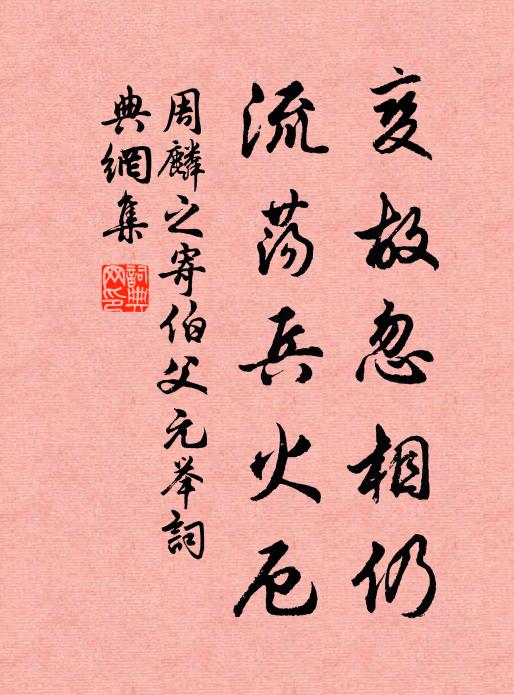 变故忽相仍
流荡兵火厄
周麟之寄伯父元举词
典网集
词典网印